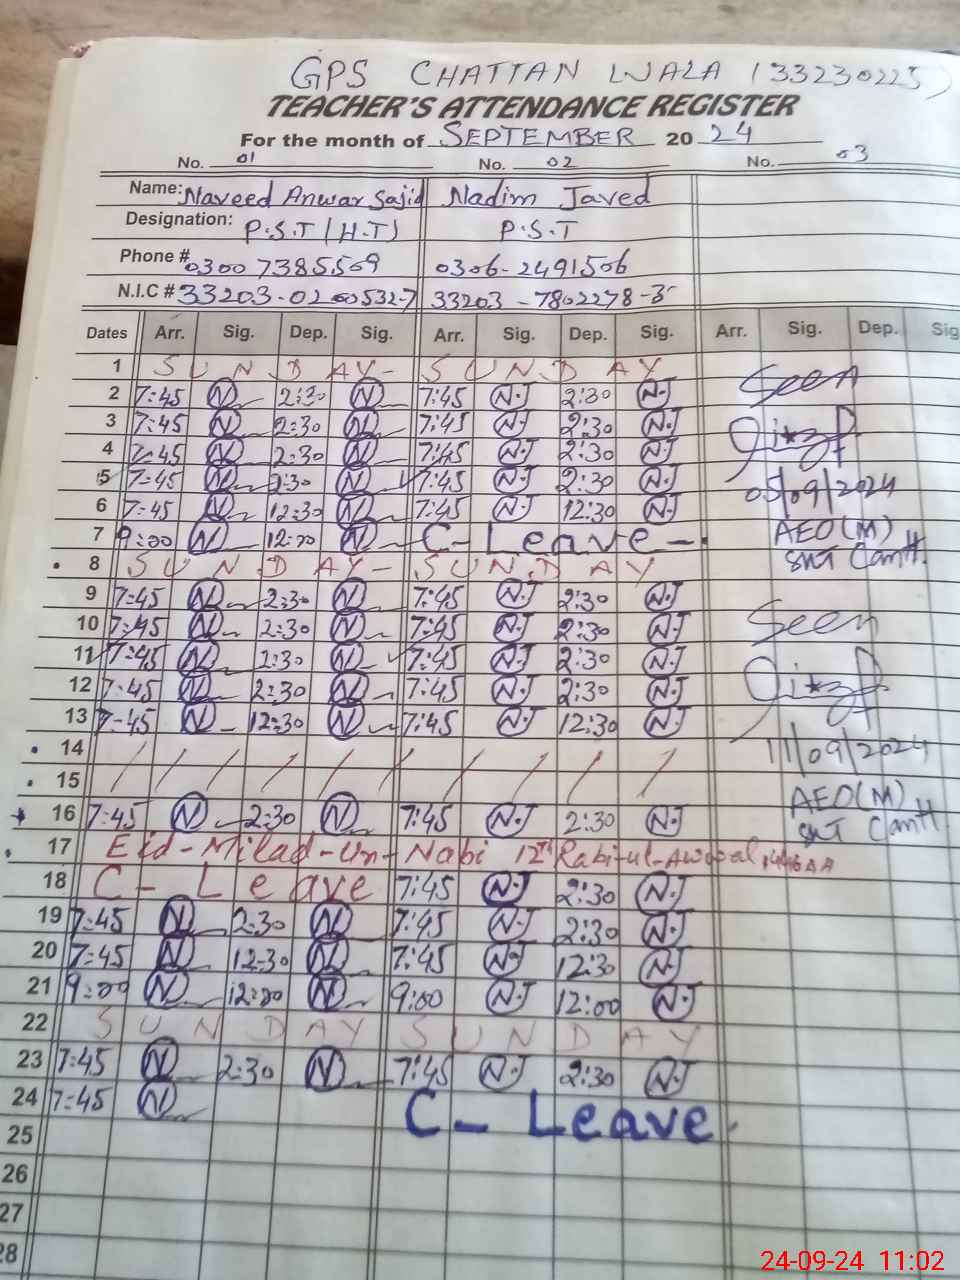 GPS CHATTAN WALA (33230225)
TEACHER'S ATTENDANCE REGISTER
For the month of SEPTEMBER 20 24
No. 01 No. 02 No. 03
Name: Naveed Anwar Sajid Nadim Javed
Designation: P.S.T (H.T) P.S.T
Phone # 0300 7385509 0306-2491506
N.I.C # 33203-0200532-7 33203-7802278-3
Dates Arr. Sig. Dep. Sig. Arr. Sig. Dep. Sig. Arr. Sig. Dep. Sig
1 SUNDAY- SUNDAY
2 7:45 N 2:30 N 7:45 N.J 2:30 N.J Seen
3 7:45 N 2:30 N 7:45 N.J 2:30 N.J
4 7:45 N 2:30 N 7:45 N.J 2:30 N.J
5 7-45 N 2:30 N 7:45 N.J 2:30 N.J 05/09/2024
6 7-45 N 12:30 N 7:45 N.J 12:30 N.J AEO(M)
7 9:00 N 12:00 N C-Leave-. SNT Cantt.
8 SUNDAY- SUNDAY
9 7:45 N 2:30 N 7:45 N.J 2:30 N.J
10 7:45 N 2:30 N 7:45 N.J 2:30 N.J Seen
11 7:45 N 2:30 N 7:45 N.J 2:30 N.J
12 7:45 N 2:30 N 7:45 N.J 2:30 N.J
13 7-45 N 12:30 N 7:45 N.J 12:30 N.J
14 11/09/2024
15 / / / / / / / / / AEO(M)
16 7:45 N 2:30 N 7:45 N.J 2:30 N.J SNT Cantt
17 Eid-Milad-Un-Nabi 12th Rabi-ul-Awwal 1446
18 C- Leave 7:45 N.J 2:30 N.J
19 7:45 N 2:30 N 7:45 N.J 2:30 N.J
20 7:45 N 12:30 N 7:45 N.J 12:30 N.J
21 9:00 N 12:00 N 9:00 N.J 12:00 N.J
22 SUNDAY SUNDAY
23 7:45 N 2:30 N 7:45 N.J 2:30 N.J
24 7:45 N C- Leave.
25
26
27
28
24-09-24 11:02